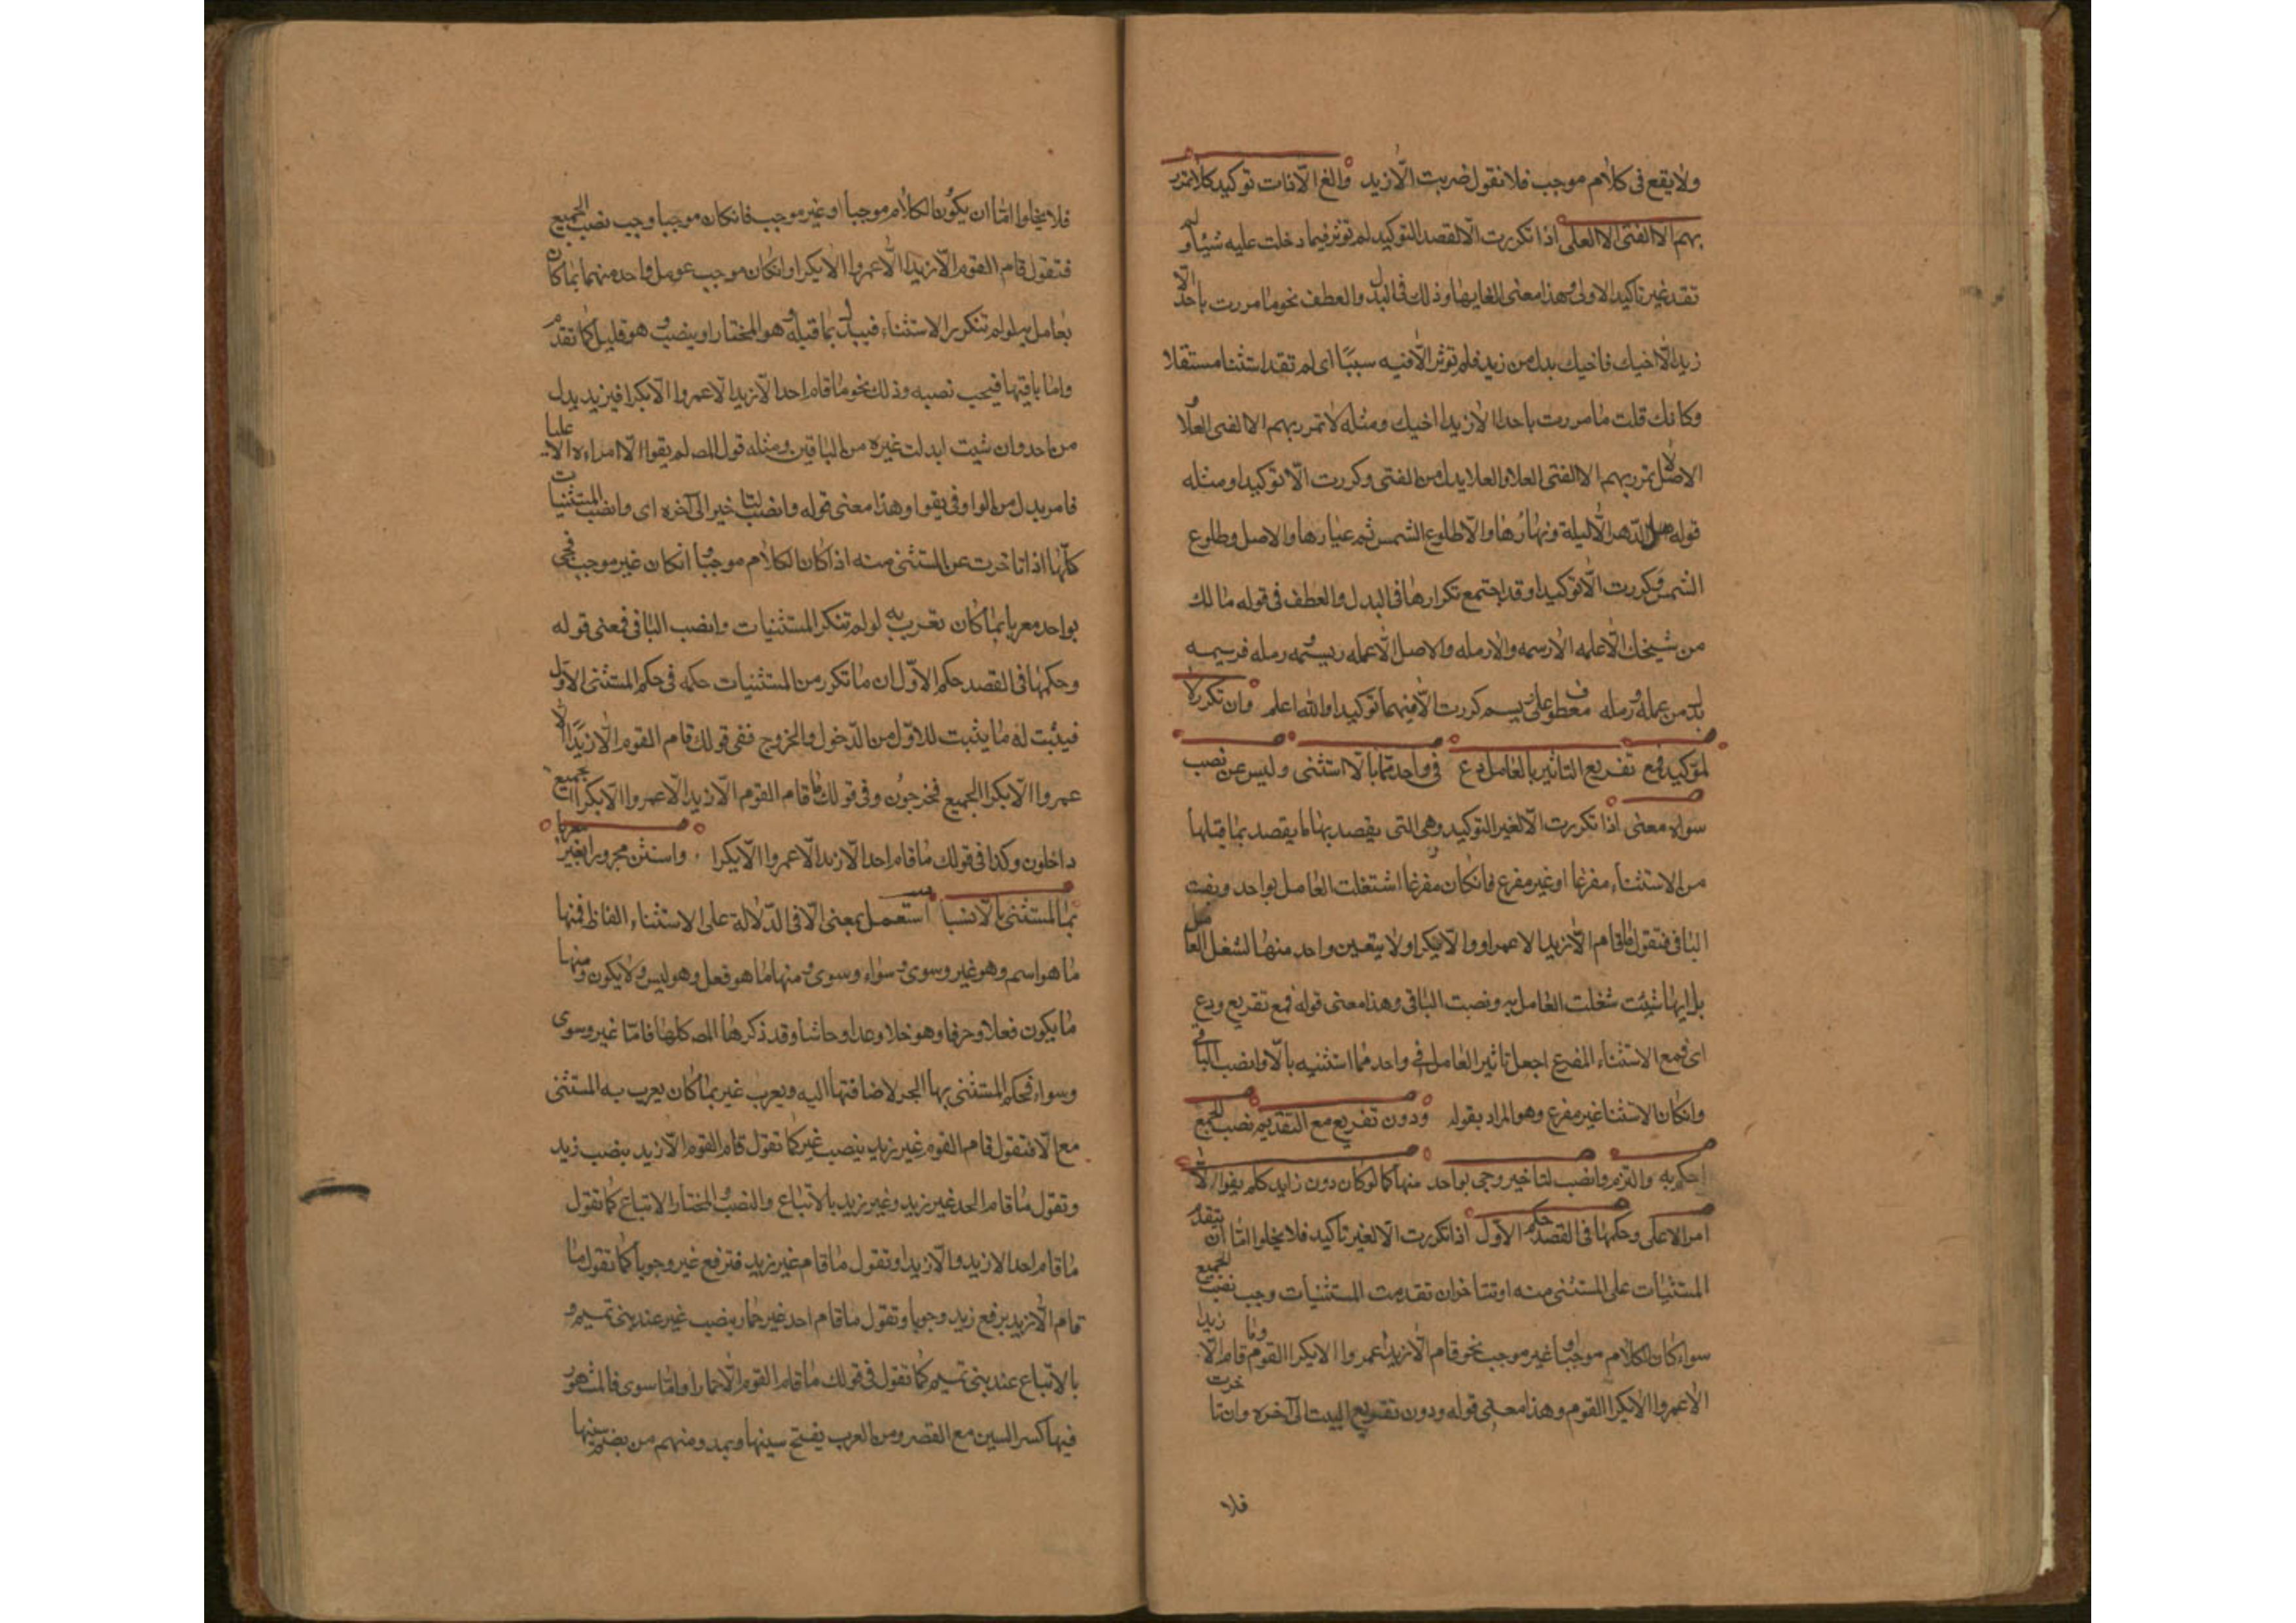 ولا يقع فى كلام موجب فلا نقول ضربت الا زيد والغ الا ذات توكيد كلا تمرر
بهم الا الفتى الا العلى اذا تكررت الا لقصد التوكيد لم توثر فيما دخلت عليه شيئا ولم
تفد غير تاكيد الاولى وهذا معنى الغايها وذلك فى البدل والعطف نحو ما مررت باحد الا
زيد الا اخيك فاخيك بدل من زيد فلم توثر الا فيه سببا اى لم تفد استثنا مستقلا
وكانك قلت ما مررت باحد الا زيد اخيك ومثله لا تمرر بهم الا الفتى العلا
الاصل لا تمرر بهم الا الفتى العلا والعلا بدل من الفتى وكررت الا توكيدا ومثله
قوله هل الدهر الا ليلة ونهارها والا طلوع الشمس ثم غيارها والاصل وطلوع
الشمس وكررت الا توكيدا وقد اجتمع تكرارها فى البدل والعطف فى قوله ما لك
من شيخك الا عمله الا رسمه والا رمله والاصل الا عمله رسيمه ورمله فرسيمه
بدل من عمله ورمله معطوف على رسيم كررت الا فيهما توكيدا والله اعلم وان تكرر لا
لتوكيد فمع تفريع التاثير بالعامل دع فى واحد مما بالا استثنى وليس عن نصب
سواه معنى اذا تكررت الا لغير التوكيد وهى التى يقصد بها ما يقصد بما قبلها
من الاستثناء مفرغا او غير مفرغ فان كان مفرغا اشتغلت العامل بواحد ونصبت
الباقى فتقول ما قام الا زيد الا عمراو والا بكرا ولا يتعين واحد منها لشغل العامل
بل ايها شيئت شغلت العامل به ونصبت الباقى وهذا معنى قوله فمع تفريع ودع
اى فمع الاستثناء المفرع اجعل تاثير العامل فى واحد مما استثنيه بالا وانصب الباقى
وان كان الاستثنا غير مفرع وهو المراد بقوله ودون تفريع مع التقديم نصب الجميع
احكم به والتزم وانصب لتاخير وجى بواحد منها كما لو كان دون زايد كلم يفوا الا
امر الا على وحكمها فى القصد حكم الاول اذا تكررت الا لغير تاكيد فلا يخلوا اما ان يتقدم
المستثنيات على المستثنى منه او تتاخر ان تقدمت المستثنيات وجب نصب الجميع
سواء كان الكلام موجبا او غير موجب نحو قام الا زيدا عمروا الا بكرا القوم وما قام الا زيدا
الا عمروا الا بكرا القوم وهذا معنى قوله ودون تفريع البيت الى آخره وان تاخرت
فلا
فلا يخلوا اما ان يكون الكلام موجبا او غير موجب فان كان موجبا وجب نصب الجميع
فتقول قام القوم الا زيدا الا عمروا الا بكرا وان كان موجب عومل واحد منهما بما كان
يعامل به لو لم تتكرر الاستثناء فيبدل بما قبله وهو المختار او ينصب وهو قليل كما تقدم
واما باقيها فيجب نصبه وذلك نحو ما قام احد الا زيدا الا عمروا الا بكرا فيزيد بدل
من احد وان شيت ابدلت غيره من الباقين ومثله قول المصـ لم يفوا الا امراءة الا عليا
فامر بدل من الواو فى يفوا وهذا معنى قوله وانصب لتاخير الى آخره اى وانصب المستثنيات
كلها اذا تاخرت عن المستثنى منه اذا كان الكلام موجبا وانكان غير موجب فجى
بواحد معربا بما كان تعرب به لو لم تتكر المستثنيات وانصب الباقى فمعنى قوله
وحكمها فى القصد حكم الاول ان ما تكرر من المستثنيات حكمه فى حكم المستثنى الاول
فيثبت له ما يثبت للاول من الدخول والخروج ففى قولك قام القوم الا زيدا الا
عمروا الا بكرا الجميع مخرجون وفى قولك ما قام القوم الا زيدا الا عمروا الا بكرا الجميع
داخلون وكذا فى قولك ما قام احد الا زيدا الا عمروا الا بكرا واستثن مجرورا بغير معربا
بما لمستثنى بالا نسبا استعمل بمعنى الا فى الدلالة على الاستثناء الفاظ فمنها
ما هو اسم وهو غير وسوى وسواء وسوى ومنها ما هو فعل وهو ليس ولا يكون ومنها
ما يكون فعلا وحرفا وهو خلا وعدا وحاشا وقد ذكرها المصـ كلها فاما غير وسوى
وسواء فحكم المستثنى بها الجر لاضافتها اليه ويعرب غير بما كان يعرب به المستثنى
مع الا فتقول قام القوم غير زيد بنصب غير كما تقول قام القوم الا زيد بنصب زيد
وتقول ما قام احد غير زيد وغير زيد بالاتباع والنصب والمختار الاتباع كما تقول
ما قام احد الا زيد والا زيدا وتقول ما قام غير زيد فترفع غير وجوبا كما تقول ما
قام الا زيد برفع زيد وجوبا وتقول ما قام احد غير حمار بنصب غير عند بنى تميم و
بالاتباع عند بنى تميم كما تقول فى قولك ما قام القوم الا حمارا واما سوى فالمشهور
فيها كسر السين مع القصر ومن العرب يفتح سينها ويمد ومنهم من يضم سينها